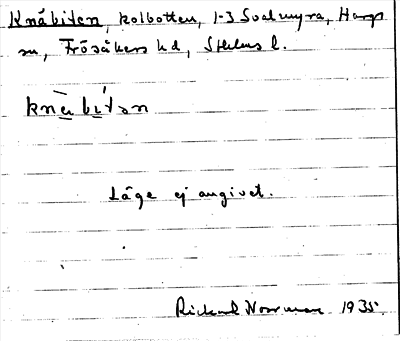 Knäbiten, kolbotten, 1-3 Svalmyra, Hargs
sn, Frösåkers hd, Sthlms l.
knèbítən
Läge ej angivet.
Rickard Norrman 1935.